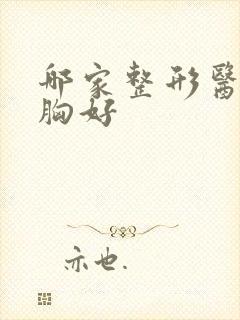 哪家整形醫
胸好
亦也.